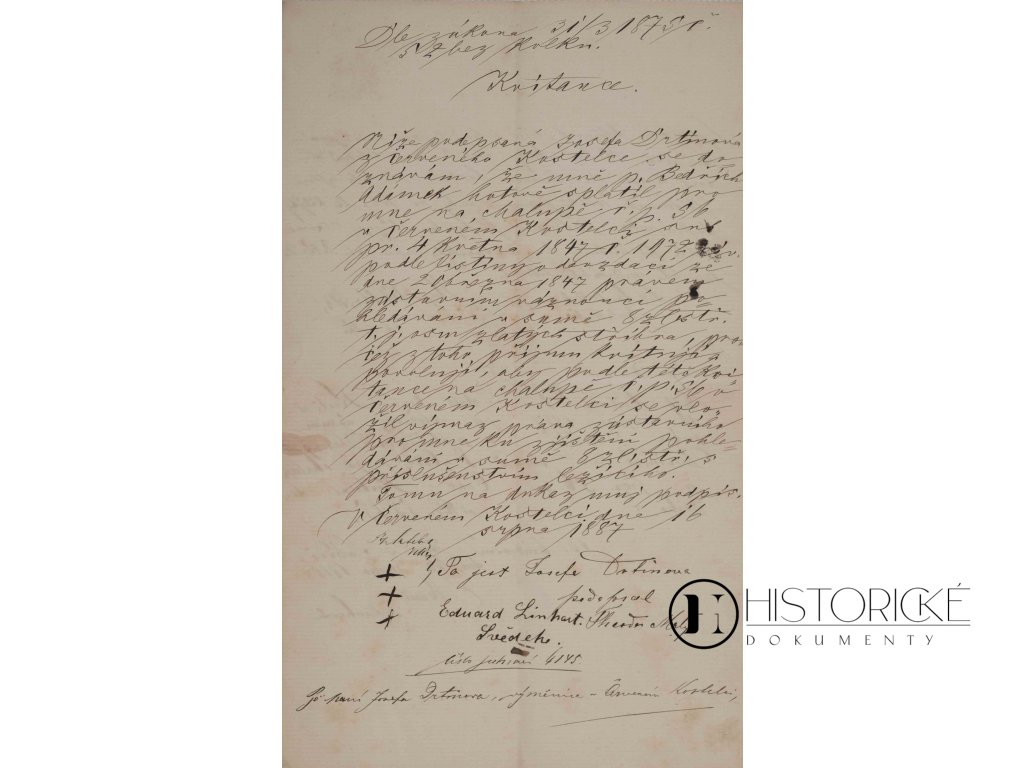 Dle zákona 31/3 1875 č.
bez kolku.
Kvitance.
Níže podepsaná Josefa Drtinová
z Červeného Kostelce se do
znávám, že mně p. Bedřich
Adámek hotově splatil pro
mne na chalupě č. p. 56
v Červeném Kostelci
pr. 4 Května 1847 č. 1972
podle listiny odevzdací ze
dne 20 března 1847 právem
zástavním váznoucí po-
hledávání v sumě 8 zl. stř.
t. j. osm zlatých stříbra, pro
čež z toho příjmu kvituji a
povoluji, aby podle této kvi
tance na chalupě č. p. 56 v
Červeném Kostelci se vlo-
žil výmaz práva zástavního
pro mne ku zjištění pohle-
dávání v sumě 8 zl. stř. s
příslušenstvím ležícího.
Tomu na důkaz můj podpis.
V Červeném Kostelci dne 16
srpna 1887
+ To jest Josefa Drtinova
+ podepsal
+ Eduard Linhart. Theodor
Svědek.
číslo 6145
Josefa Drtinova, výměnice Červený Kostelec,
HISTORICKÉ
DOKUMENTY